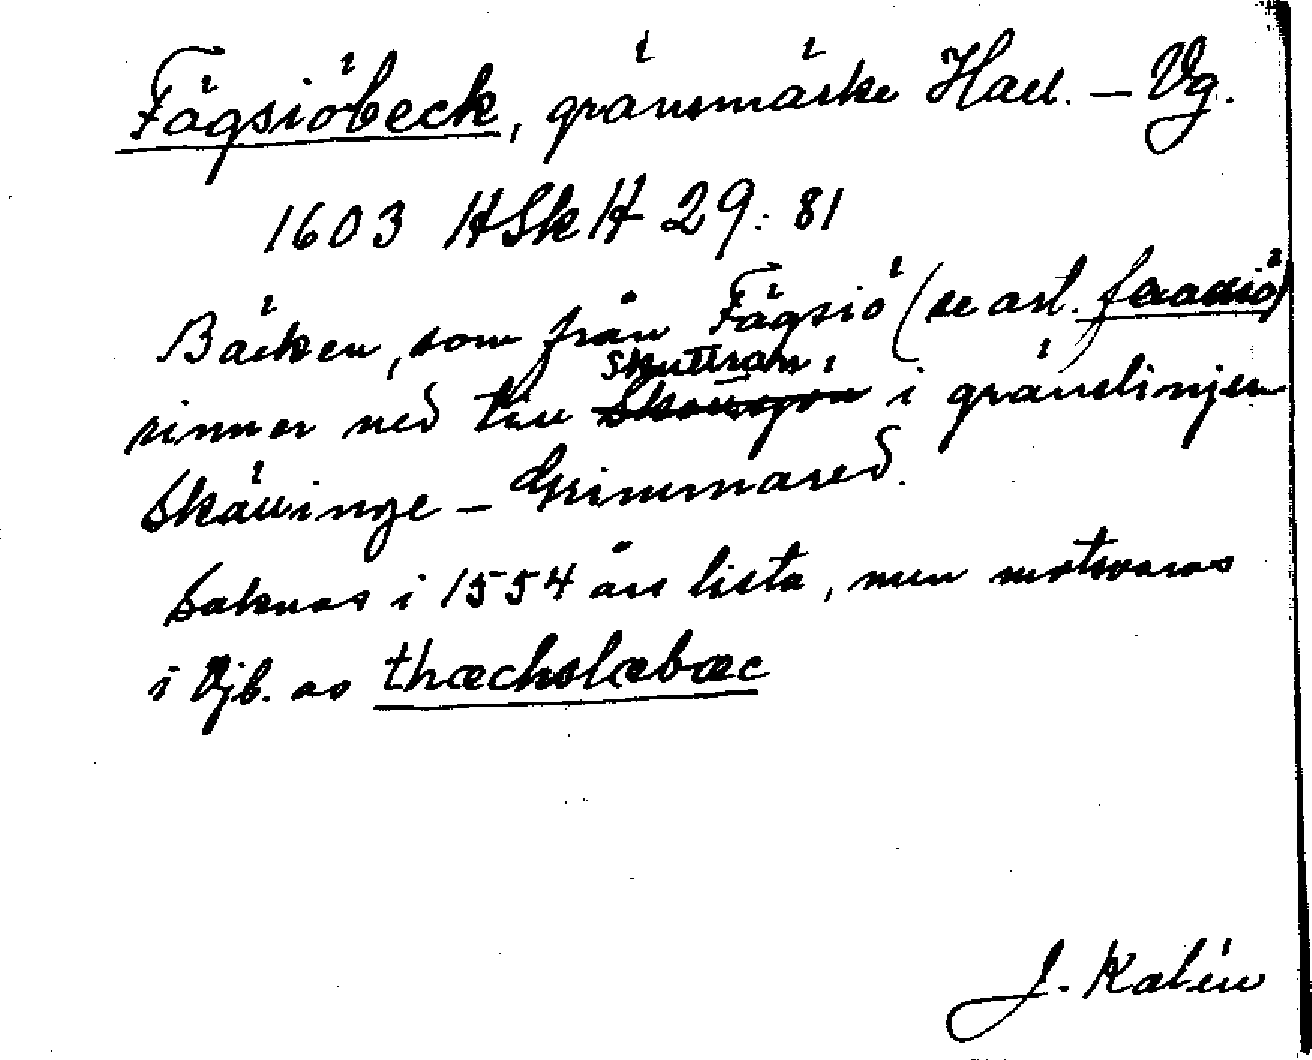 Fägsiöbeck, gränsmärke Hall. – Vg.
1603 HSkH 29:81
Bäcken, som från Fägsiö (se art. faaxiö)
Skuttran,
rinner ned till i gränslinjen
Skällinge – Grimmared.
Saknas i 1554 års lista, men motsvaras
i Vjb. av thæchslæbæc
J. Kalén